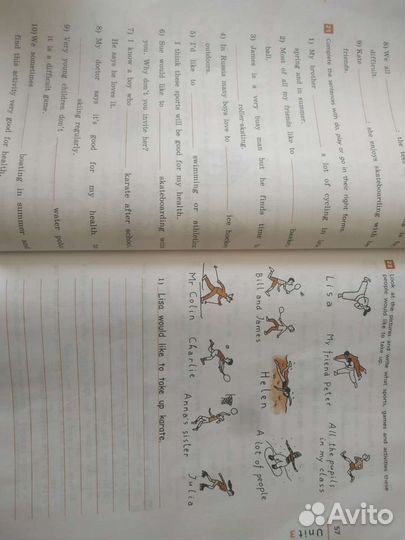 8) We all
difficult.
the bes
9) Kate
she enjoys skateboarding with h
friends.
21 Complete the sentences with do, play or go in their right forms.
1) My brother a lot of cycling in
spring and in summer.
2) Most of all my friends like to baske
ball.
3) James is a very busy man but he finds time
roller-skating.
4) In Russia many boys love to ice hocke
outdoors.
5) I'd like to swimming or athletic
I think these sports will be good for my health.
6) Sue would like to skateboarding wi
you. Why don't you invite her?
7) I know a boy who karate after schoo
He says he loves it.
8) My doctor says it's good for my health
skiing regularly.
9) Very young children don't water polo
it is a difficult game.
10) We sometimes boating in summer and
find this activity very good for health.
22 Look at the pictures and write what sports, games and activities these
people would like to take up.
Lisa
My friend Peter
All the pupils
in my class
Bill and James
Helen
A lot of people
Mr Colin
Charlie
Anna's sister
Julia
1) Lisa would like to take up karate.
57
Unit 3
Avito